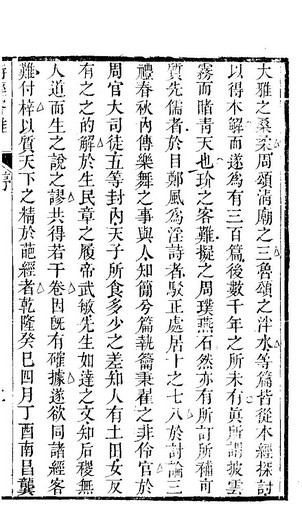 大雅之桑柔周頌淸廟之三魯頌之泮水等篇皆從本經探討
以得本解而遂爲有三百篇後數千年之所未有眞所謂披雲
霧而睹靑天也玠之客難擬之周璞燕石然亦有所訂所稱可
質先儒者於目鄭風爲淫詩者駁正處居十之七八於討論三
禮春秋內傳樂舞之事與人知簡兮篇執籥秉翟之非伶官於
周官大司徒五等封內天子所食多少之差知人有土田女反
有之之的解於生民章之履帝武敏先生如達之文知后稷無
人道而生之說之謬共得若干卷因旣有確據遂欲同諸經客
難付梓以質天下之精於葩經者乾隆癸巳四月丁酉南昌龔